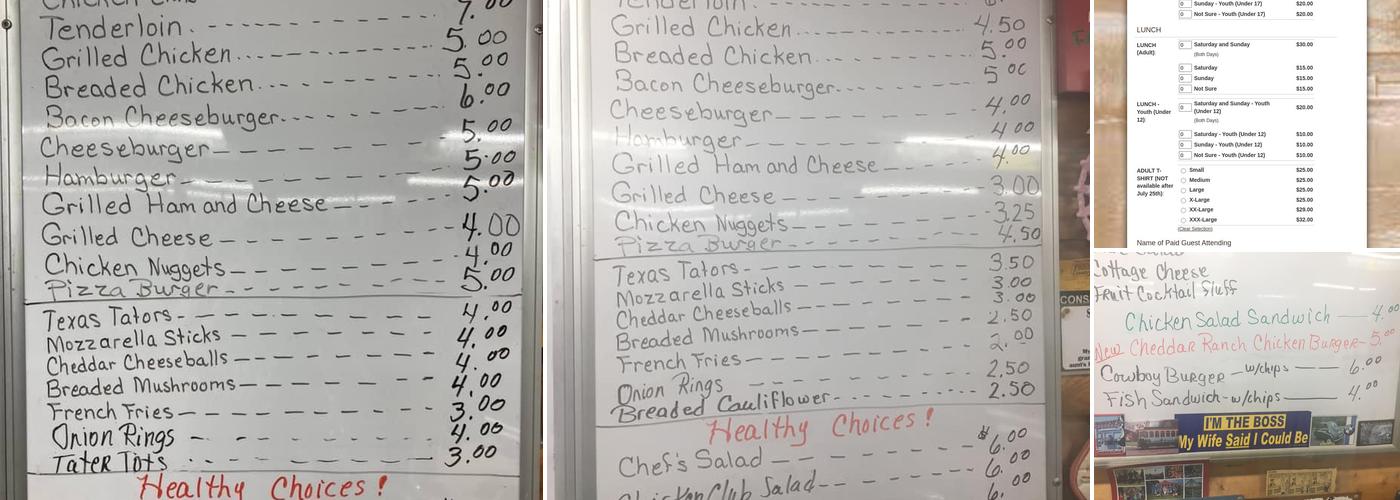 Tenderloin . 7.00
Grilled Chicken... - - - - - 5.00
Breaded Chicken. - - - - - - 5.00
Bacon Cheeseburger. - - - - 6.00
Cheeseburger - - - - - - - 5.00
Hamburger - - - - - - - 5.00
Grilled Ham and Cheese - - - - 5.00
Grilled Cheese - - - - - - - 4.00
Chicken Nuggets - - - - - - 4.00
Pizza Burger - - - - - - - 5.00
Texas Tators - - - - - - - 4.00
Mozzarella Sticks 4.00
Cheddar Cheeseballs - - - - - - 4.00
Breaded Mushrooms - - - - - - 4.00
French Fries - - - - - - - 3.00
Onion Rings - - - - - - - 4.00
Tater Tots - - - - - - - 3.00
Healthy Choices!
Tenderloin
Grilled Chicken. - - - - - - 4.50
Breaded Chicken. - - - - - - 5.00
Bacon Cheeseburger. - - - - 5.00
Cheeseburger - - - - - - - 4.00
Hamburger - - - - - - - 4.00
Grilled Ham and Cheese - - - - 4.00
Grilled Cheese - - - - - - - 3.00
Chicken Nuggets - - - - - - 3.25
Pizza Burger - - - - - - - 4.50
Texas Tators - - - - - - - 3.50
Mozzarella Sticks 3.00
Cheddar Cheeseballs - - - - - - 3.00
Breaded Mushrooms - - - - - - 2.50
French Fries - - - - - - - 2.00
Onion Rings - - - - - - - 2.50
Breaded Cauliflower - - - - - - 2.50
Healthy Choices!
Chef's Salad - - - - - - - $6.00
Chicken Club Salad - - - - - 6.00
CONS
Sunday - Youth (Under 17) $20.00
Not Sure - Youth (Under 17) $20.00
LUNCH
LUNCH (Adult): 0 Saturday and Sunday $30.00
(Both Days)
0 Saturday $15.00
0 Sunday $15.00
0 Not Sure $15.00
LUNCH - Youth (Under 12): 0 Saturday and Sunday - Youth (Under 12) $20.00
(Both Days)
0 Saturday - Youth (Under 12) $10.00
0 Sunday - Youth (Under 12) $10.00
0 Not Sure - Youth (Under 12) $10.00
ADULT T-SHIRT (NOT available after July 25th): Small $25.00
Medium $25.00
Large $25.00
X-Large $25.00
XX-Large $29.00
XXX-Large $32.00
(Clear Selection)
Name of Paid Guest Attending
Cottage Cheese
Fruit Cocktail Fluff
Chicken Salad Sandwich — 4.00
New Cheddar Ranch Chicken Burger - 5.00
Cowboy Burger - w/chips — 6.00
Fish Sandwich - w/chips — 4.00
I'M THE BOSS
My Wife Said I Could Be